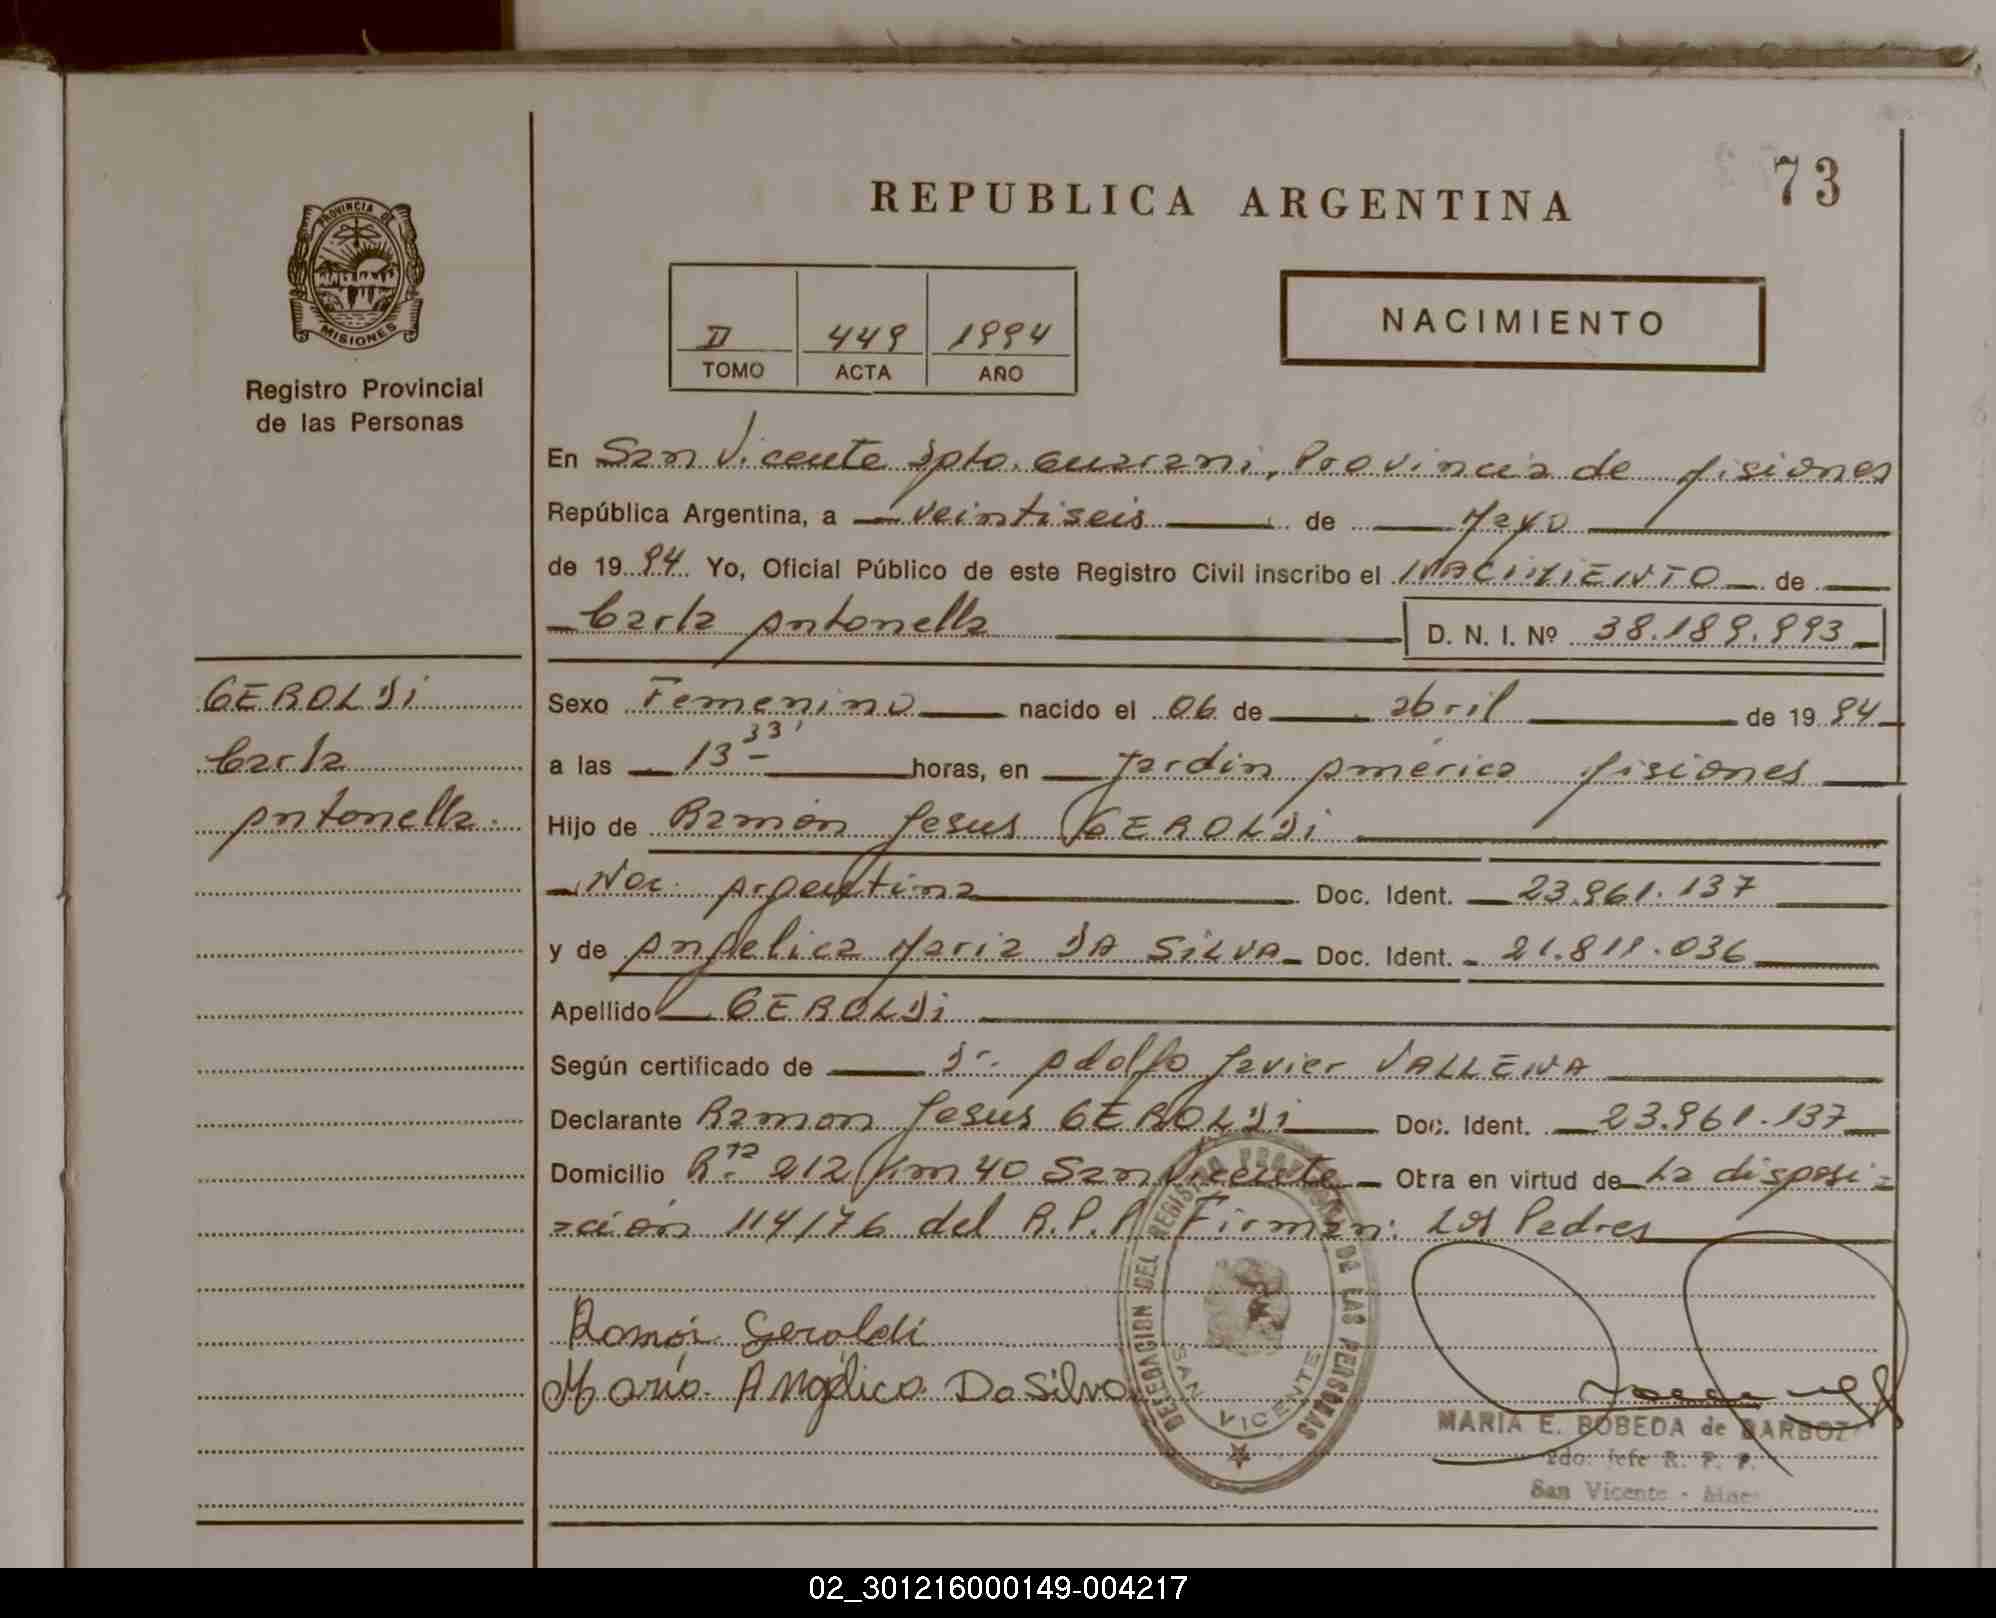 73
REPUBLICA ARGENTINA
PROVINCIA DE
MISIONES
Registro Provincial
de las Personas
II 449 1994
TOMO ACTA AÑO
NACIMIENTO
En San Vicente Dpto. Guarani, Provincia de Misiones
República Argentina, a veintiseis de Mayo
de 1994 Yo, Oficial Público de este Registro Civil inscribo el NACIMIENTO de
Carla Antonella D. N. I. Nº 38.189.993
GEROLDi
Carla
Antonella.
Sexo Femenino nacido el 06 de abril de 1994
a las 13 33' horas, en Jardin América Misiones
Hijo de Ramón Jesus GEROLDi
Nac. Argentina Doc. Ident. 23.961.137
y de Angelica Maria DA SiLVA Doc. Ident. 21.811.036
Apellido GEROLDi
Según certificado de Dr. Adolfo Javier
Declarante Ramon Jesus GEROLDi Doc. Ident. 23.961.137
Domicilio R.ta 212 Km 40 San Vicente Otra en virtud de La disposi-
-ción 114/76 del R.P.P. Firman: Los Padres
Ramón Geroldi
Maria Angélica Da Silva
DELEGACION DEL REGISTRO PROVINCIAL DE LAS PERSONAS
SAN VICENTE
MARIA E. BOBEDA de BARBOZ
Jefe R. P. P.
San Vicente -
02_301216000149-004217